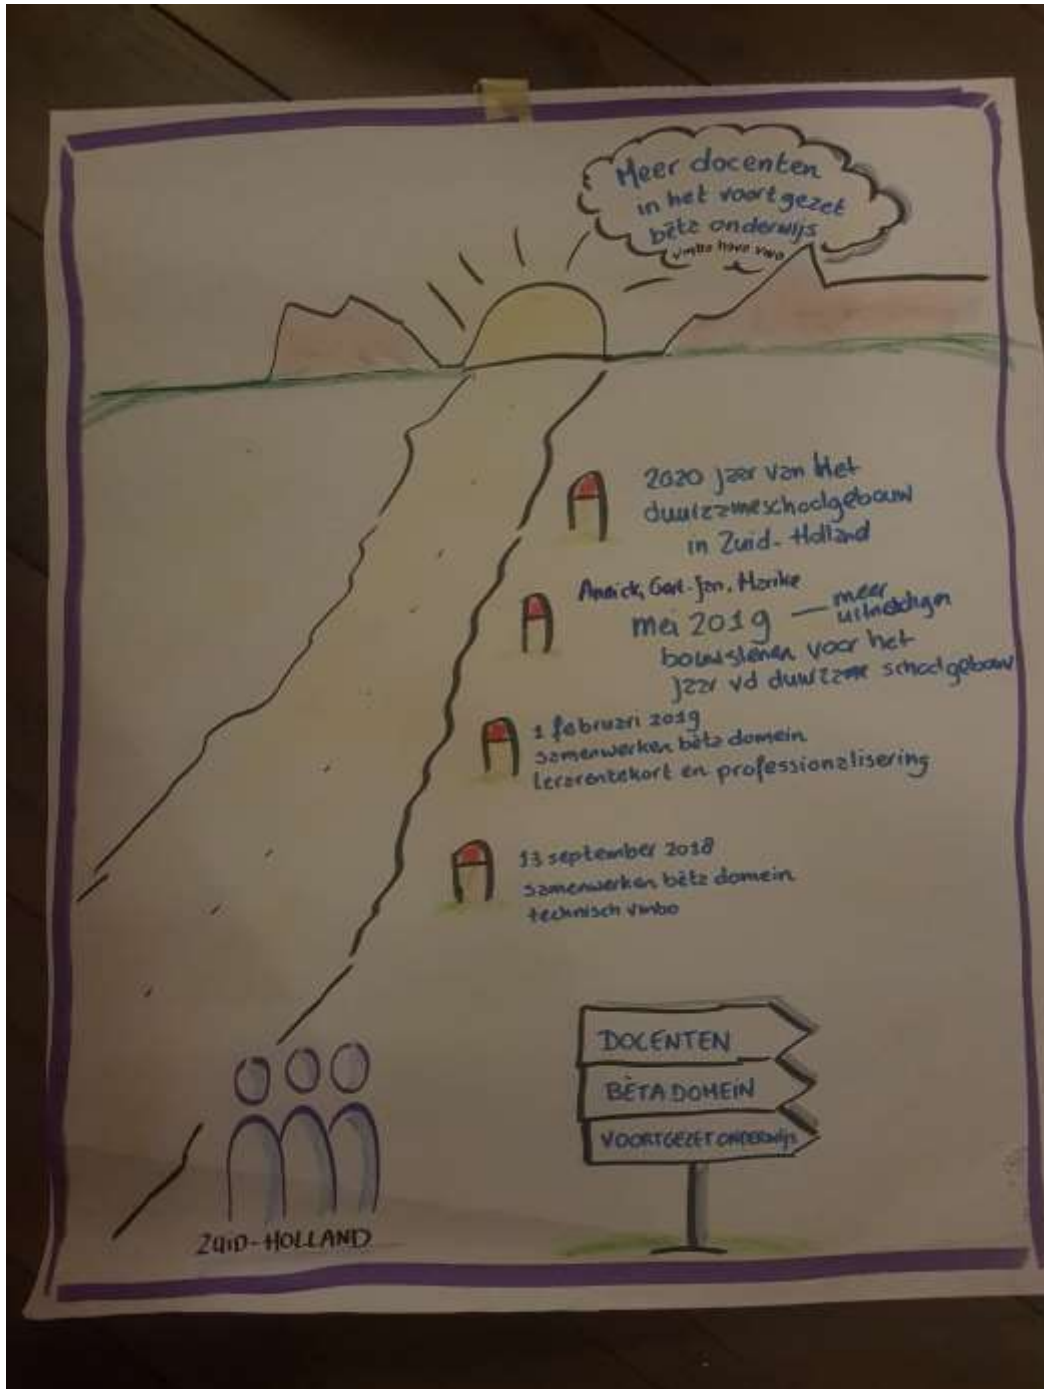 Meer docenten
in het voortgezet
bèta onderwijs
vmbo havo vwo
2020 jaar van het
duurzameschoolgebouw
in Zuid-Holland
Annick, Gert-Jan, Marike
mei 2019 — meer
uitnodigen
bouwstenen voor het
jaar vd duurzame schoolgebouw
1 februari 2019
samenwerken bèta domein
lerarentekort en professionalisering
13 september 2018
samenwerken bèta domein
technisch vmbo
DOCENTEN
BÈTA DOMEIN
VOORTGEZET ONDERWIJS
ZUID-HOLLAND